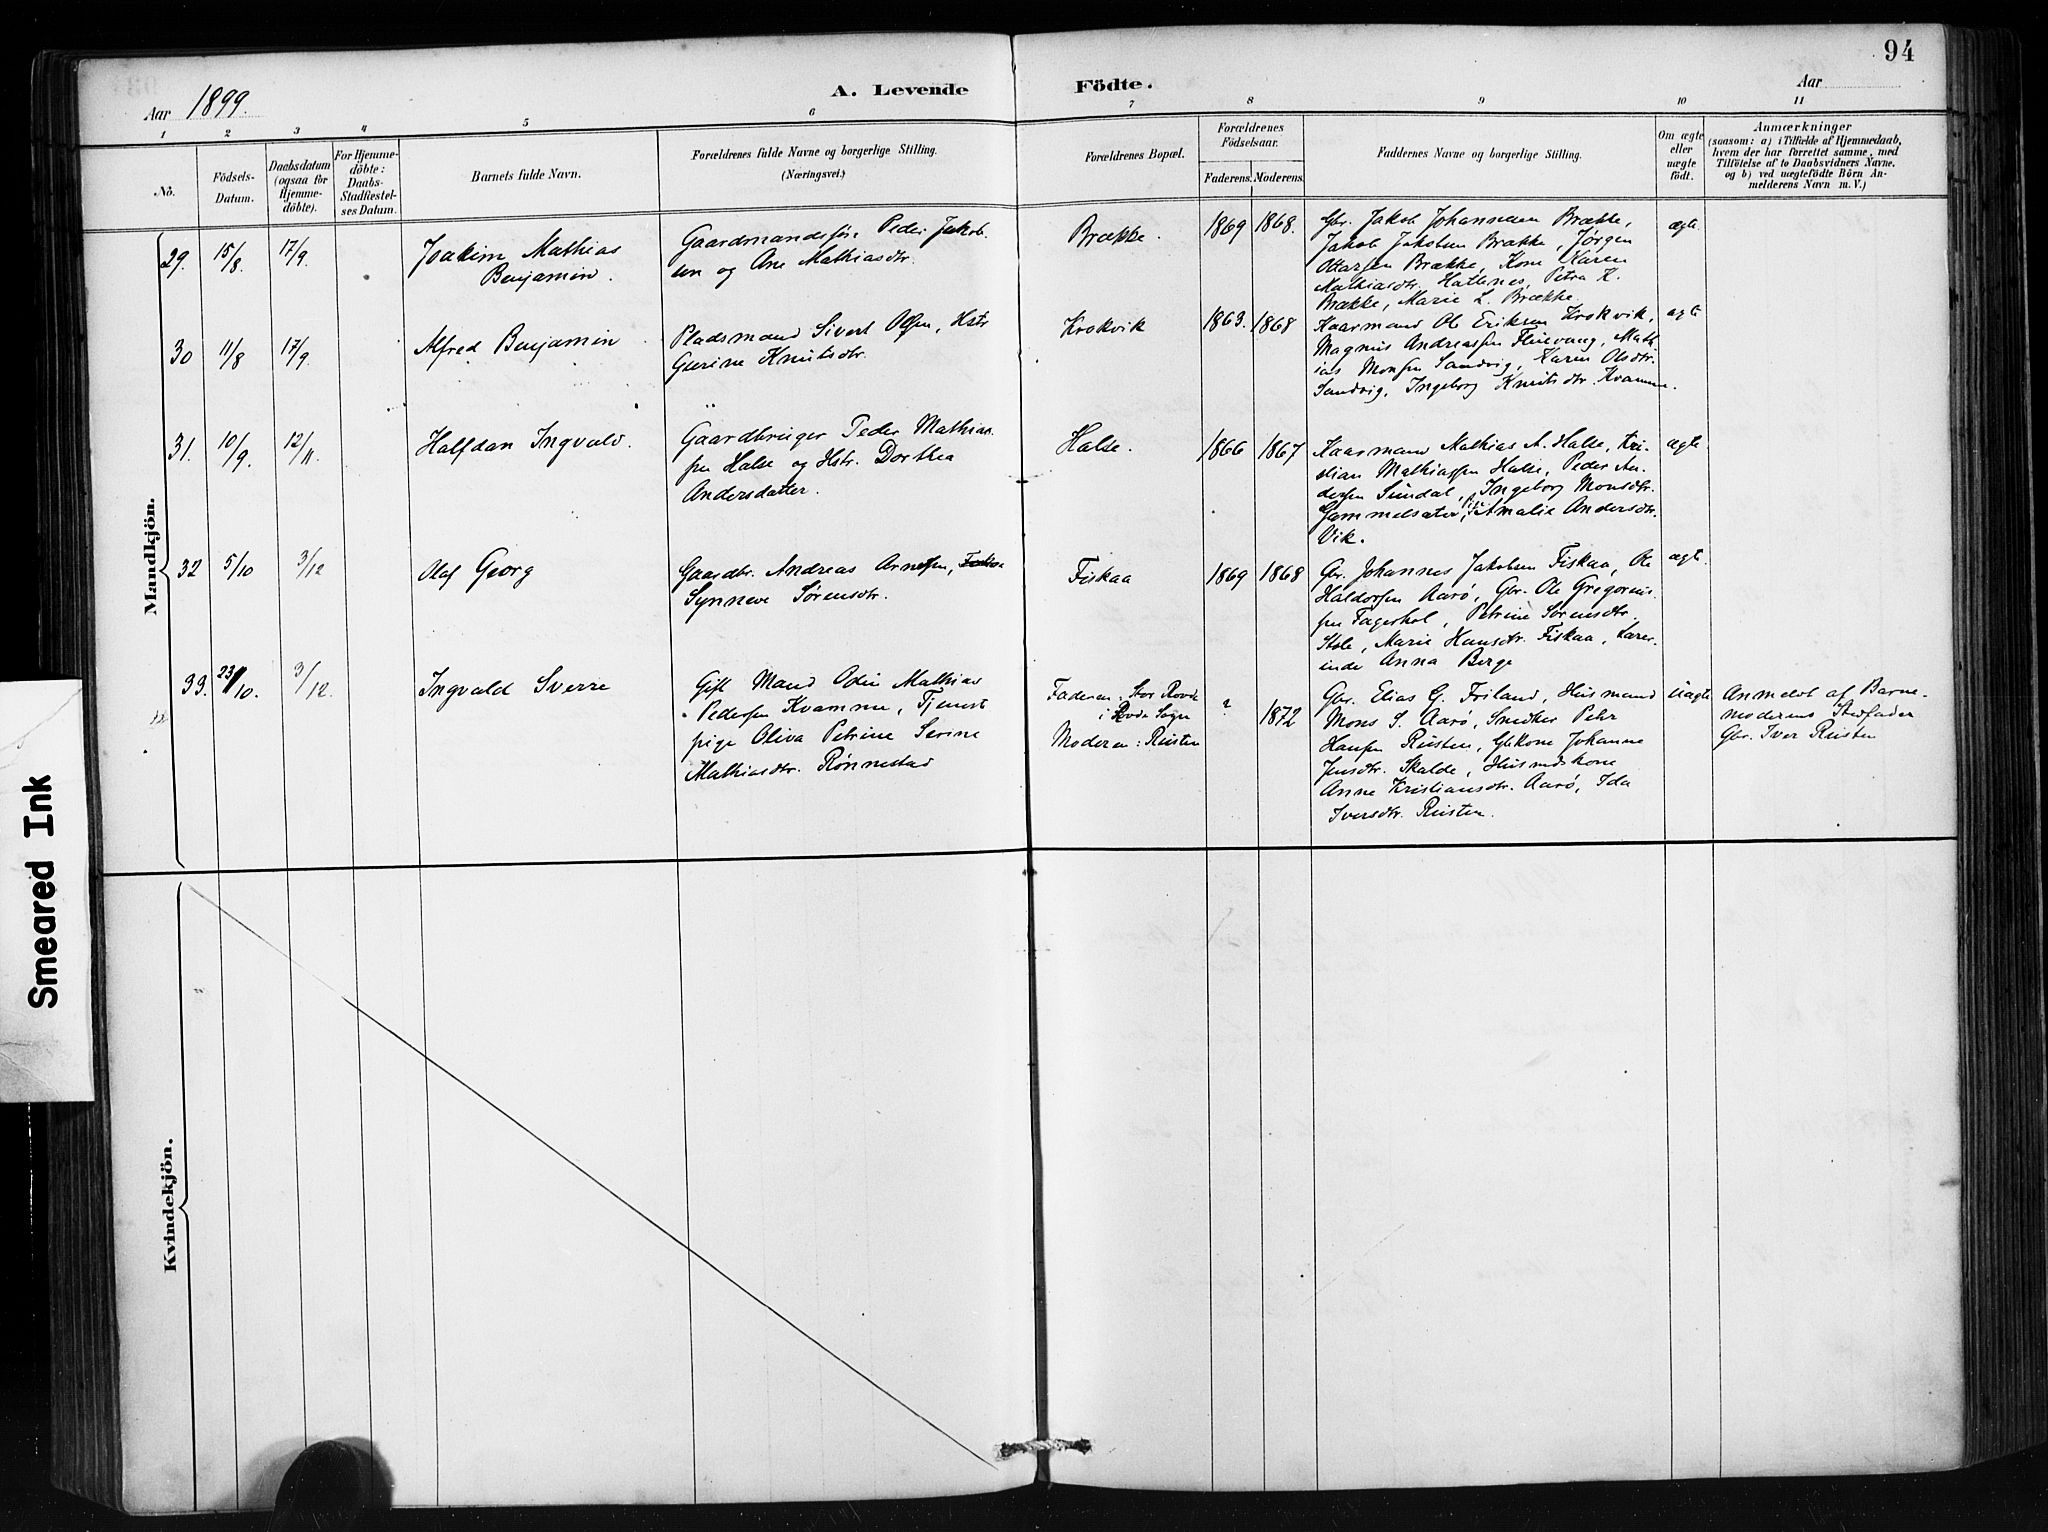 94
Aar 1899.
A. Levende Födte.
Aar
1 2 3 4 5 6 7 8 9 10 11
No.
Födsels-
Datum.
Daabsdatum
(ogsaa for
Hjemme-
döbte).
For Hjemme-
döbte:
Daabs-
Stadfæstel-
ses Datum.
Barnets fulde Navn.
Forældrenes fulde Navne og borgerlige Stilling.
(Næringsvei.)
Forældrenes Bopæl.
Forældrenes
Födselsaar.
Faderens. Moderens.
Faddernes Navne og borgerlige Stilling.
Om ægte
eller
uægte
födt.
Anmærkninger
(saasom: a) i Tilfælde af Hjemmedaab,
hvem der har forrettet samme, med
Tilföielse af to Daabsvidners Navne,
og b) ved uægtefödte Börn An-
melderens Navn m. V.)
Mandkjön.
29. 15/8 17/9.
Joakim Mathias
Benjamin.
Gaardmandsför Peder Jakob.
sen og Ane Mathiasdtr.
Brække.
1869 1868.
Gbr. Jakob Johannesen Brække,
Jakob Jakobsen Brække, Jørgen
Ottarsen Brække, Kone Karen
Mathiasdtr. Hatlenes, Petra K.
Brække, Marie L. Brække.
ægte
30 11/8 17/9.
Alfred Benjamin
Pladsmand Sivert Olsen, Hstr
Gurine Knutsdtr.
Krokvik
1863. 1868
Kaarmand Ole Eriksen Krokvik,
Magnus Andreassen Fluevaag, Math
ias Monsen Sandvig, Karen Olsdtr.
Sandvig, Ingeborg Knutsdtr. Kvamme.
ægte
31. 10/9. 12/11.
Halfdan Ingvald.
Gaardbruger Peder Mathias
sen Halse og Hstr. Dorthea
Andersdatter.
Halse.
1866 1867
Kaarmand Mathias A. Halse, Kri-
stian Mathiassen Halse, Peder An-
dersen Sundal, Ingeborg Monsdtr.
Gammelsæter, Amalie Andersdtr.
Vik.
ægte
32 5/10 3/12
Olaf Georg
Gaardbr. Andreas Arnesen,
Synneve Sørensdtr.
Fiskaa
1869 1868
Gbr. Johannes Jakobsen Fiskaa, Ole
Haldorsen Aarø, Gbr. Ole Gregorius
sen Fagerhol, Petrine Sørensdtr.
Stole, Marie Hansdtr. Fiskaa, Lærer
inde Anna Berge
ægte
33. 23/10. 3/12.
Ingvald Sverre
Gift Mand Odin Mathias
Pedersen Kvamme, Tjenest
pige Oliva Petrine Serine
Mathiasdtr. Rønnestad
Faderen: Stor Rovde
i Rovde Sogn
Moderen: Rusten
? 1872
Gbr. Elias G. Friland, Husmand
Mons S. Aarø, Snedker Petr
Hansen Rusten, Gbkone Johanne
Jensdtr. Skalde, Husmdskone
Anne Kristiansdtr. Aarø, Ida
Iversdtr. Rusten.
uægte
Anmeldt af Barne-
moderens Stedfader
Gbr. Iver Rusten
Kvindekjön.
Smeared Ink